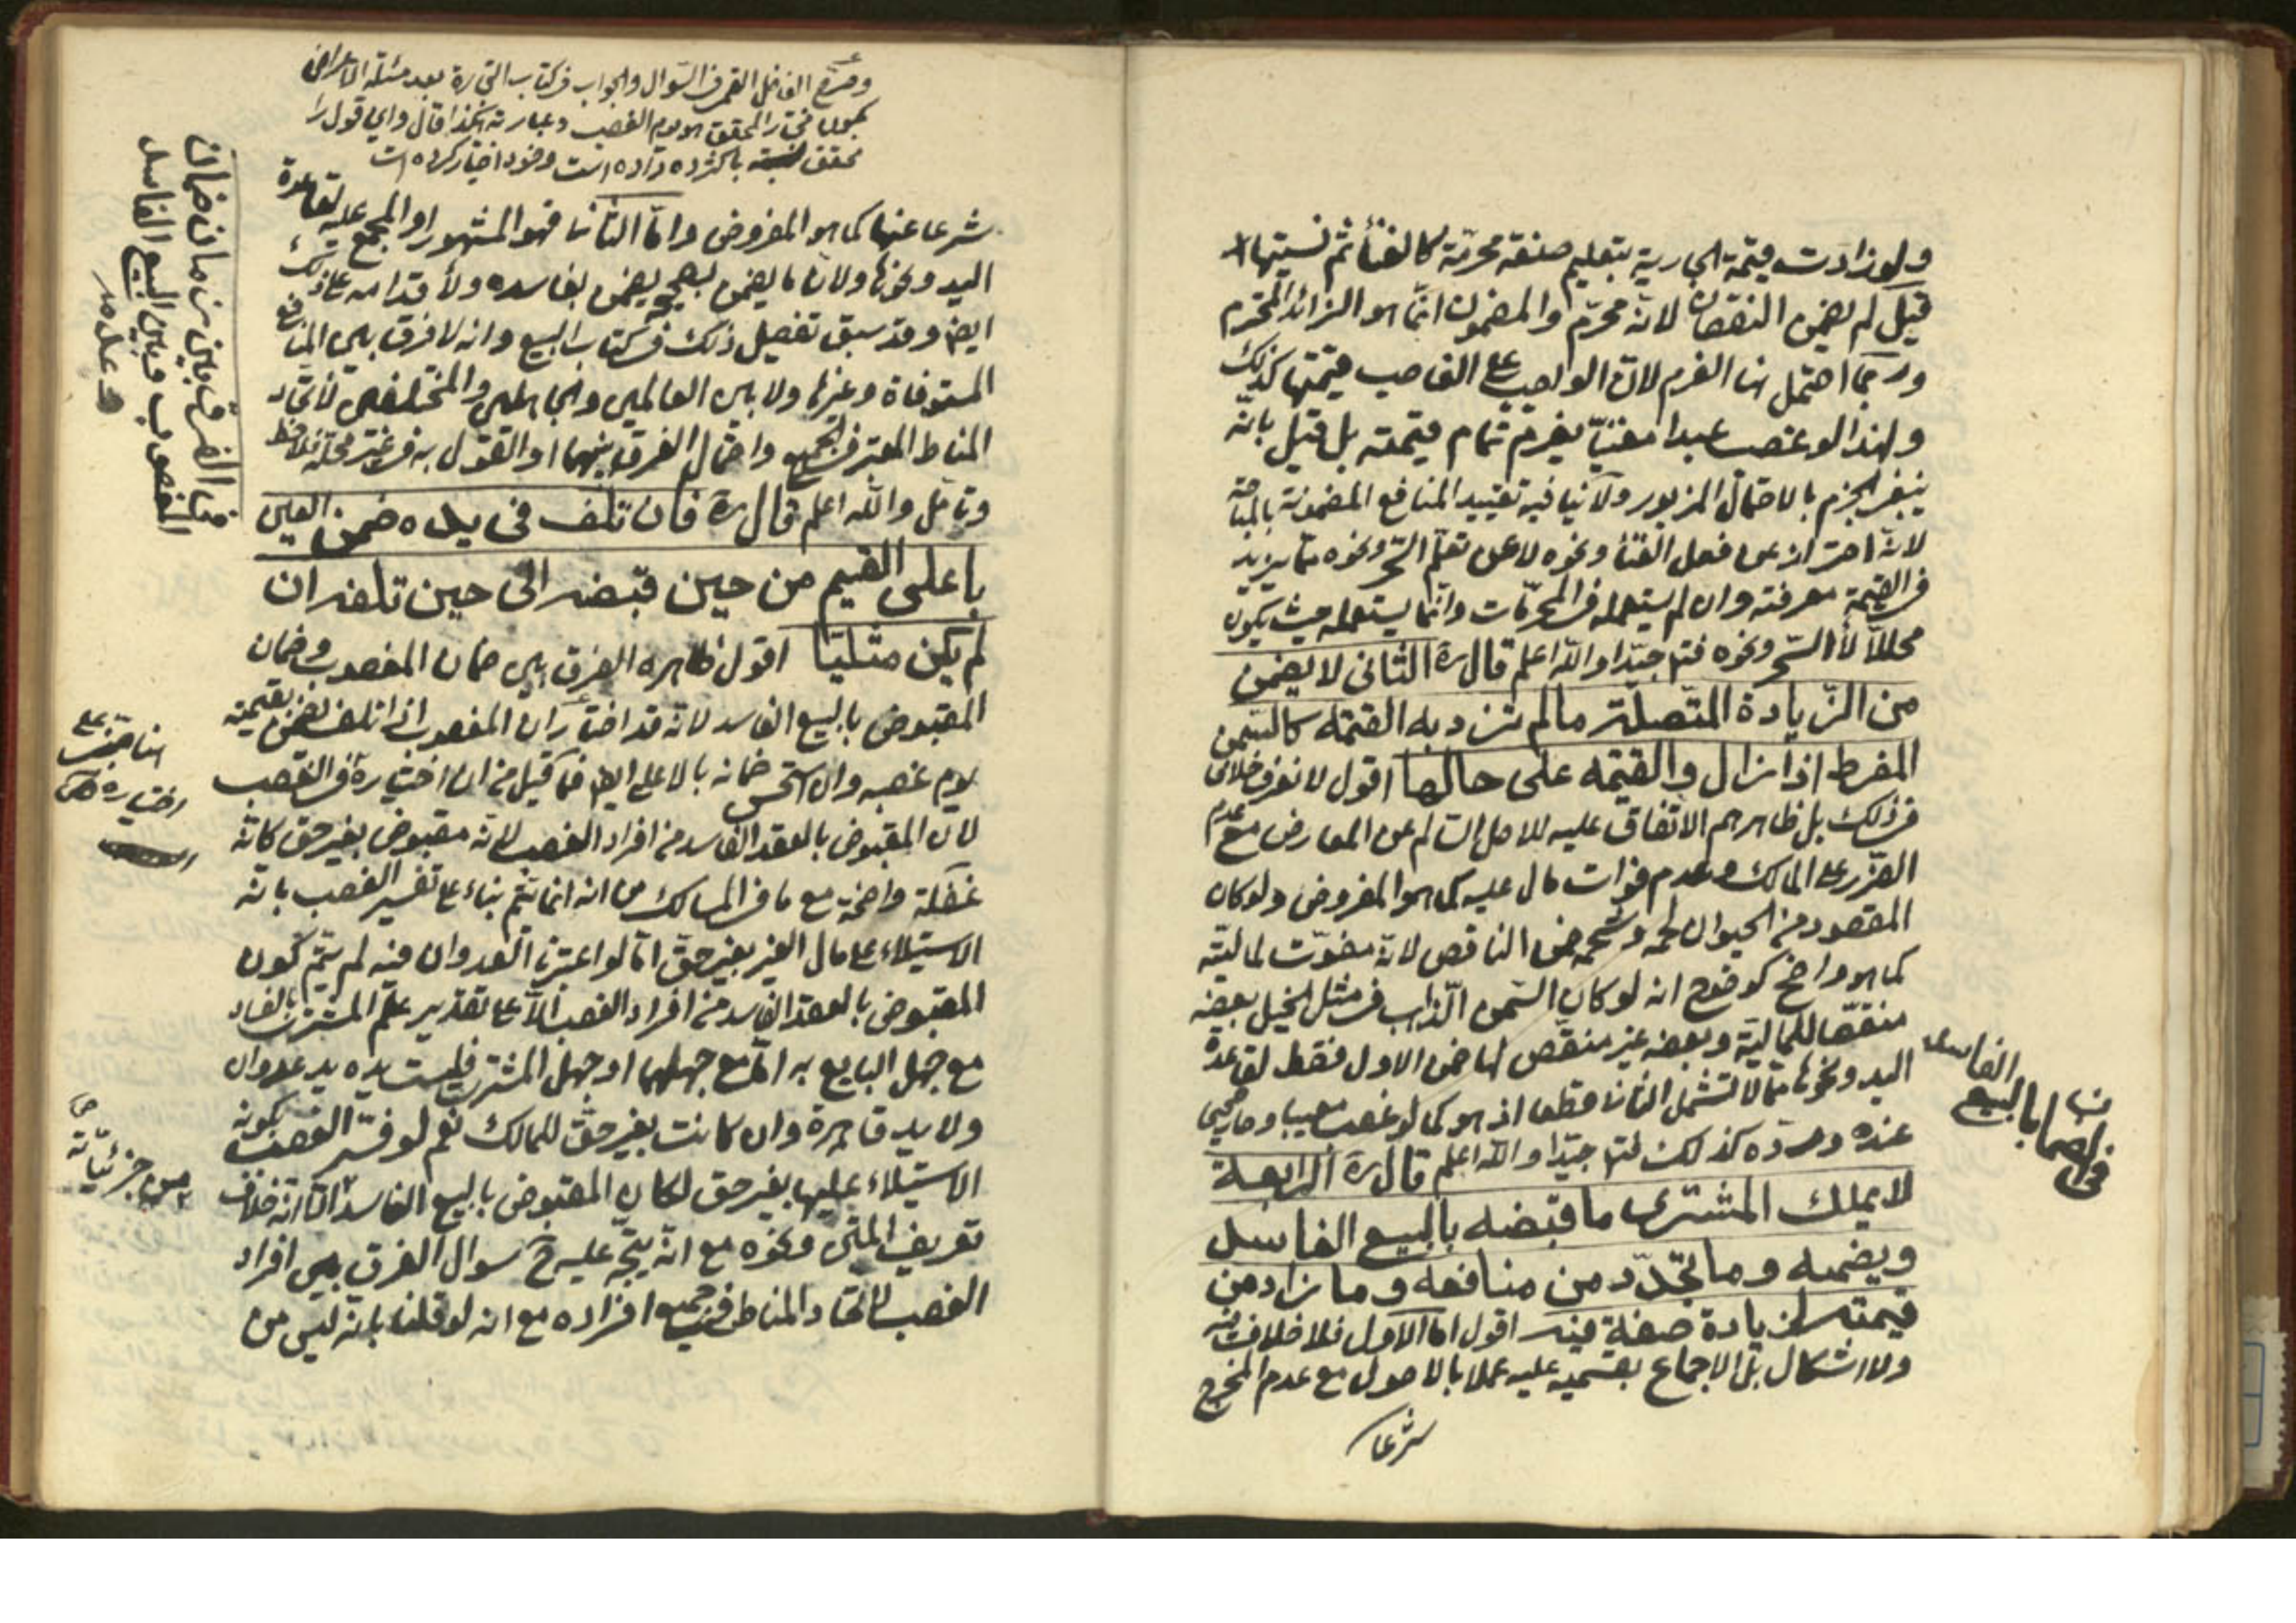 ولو زادت قيمة الجارية بتعليم صنعة محرّمة كالغناء ثم نسيتها
قيل لم يضمن النقصان لانّه محرّم والمضمون انّما هو الزائد المحترم
وربما احتمل هنا الغرم لانّ الواجب على الغاصب قيمتها كذلك
ولهذا لو غصب عبدا مغنيّا يغرم تمام قيمته بل قيل بانّه
ينبغي الجزم بالاحتمال المزبور ولا ينافيه تقييد المنافع المضمونة بالمباحة
لانّه احتراز عن فعل الغناء ونحوه لا عن تعلّم السحر ونحوه مما يزيد
في القيمة معرفته وان لم يستعمله في المحرّمات وانّما يستعمله حيث يكون
محللا لا السحر ونحوه فتامل جيّدا والله اعلم قال ره الثانى لا يضمن
من الزّيادة المتّصلة ما لم تزد به القيمة كالسمن
المفرط اذا زال والقيمة على حالها اقول لا نعرف خلافا
في ذلك بل ظاهرهم الاتّفاق عليه للاصل السالم عن المعارض مع عدم
الضّرر على المالك وعدم فوات مال عليه كما هو المفروض ولو كان
المقصود من الحيوان لحمه وشحمه ضمن الناقص لانّه مفوّت لماليّته
كما هو واضح كوضوح انه لو كان السّمن الذّاهب في مثل الخيل بعضه
منقّصا للماليّة وبعضه غير منقّص لها ضمن الاول فقط لقاعدة
اليد ونحوها ممّا لا تشمل الثانى قطعا اذ هو كما لو غصب معيبا
عنده وردّه كذلك فتامل جيّدا والله اعلم قال ره الرابعة
لا يملك المشترى ما قبضه بالبيع الفاسد
ويضمنه وما تجدّد من منافعه وما زاد من
قيمته لزيادة صفة فيه اقول اما الاول فلا خلاف فيه
ولا اشكال بل الاجماع بقسميه عليه عملا بالاصول مع عدم المخرج
شرعا
بالبيع
الفاسد
وصرّح الفاضل القمي في السؤال والجواب في كتاب التجارة بعد مسئلة
المحقق هو يوم الغصب وعبارته هكذا قال واين قول را
محقق نسبت باكثر داده است وخود اختيار كرده است
شرعا عنها كما هو المفروض وامّا الثّانى فهو المشهور او المجمع عليه لقاعدة
اليد ونحوها ولانّ ما يضمن بصحيحه يضمن بفاسده ولاقدامه على ذلك
ايضا وقد سبق تفصيل ذلك في كتاب البيع وانه لا فرق بين المنافع
المستوفاة وغيرها ولا بين العالمين والجاهلين والمختلفين لاتّحاد
المناط المعتبر في الجميع واحتمال الفرق بينهما او القول به في غير محلّه فلاحظ
وتامّل والله اعلم قال ره فان تلف فى يده ضمن العين
باعلى القيم من حين قبضه الى حين تلفه ان
لم يكن مثليّا اقول ظاهره الفرق بين ضمان المغصوب وضمان
المقبوض بالبيع الفاسد لانّه قد اختار ان المغصوب اذا تلف يضمن بقيمته
يوم غصبه وان استحسن ضمانه بالاعلى ايضا فما قيل من ان اختياره في الغصب
لانّ المقبوض بالعقد الفاسد من افراد الغصب لانّه مقبوض بغير حق كانّه
غفلة واضحة مع ما في المسالك من انه انما يتمّ بناء على تفسير الغصب بانّه
الاستيلاء على مال الغير بغير حقّ امّا لو اعتبرنا العدوان فيه لم يتمّ كون
المقبوض بالعقد الفاسد من افراد الغصب الّا على تقدير علم المشترى بالفساد
مع جهل البايع به امّا مع جهلهما او جهل المشترى فليست يده يد عدوان
ولا يد قاهرة وان كانت بغير حقّ للمالك نعم لو فسّر الغصب بكونه
الاستيلاء عليها بغير حق لكان المقبوض بالبيع الفاسد الّا انّه خلاف
تعريف المتن ونحوه مع انّه يتّجه عليه ح سوال الفرق بين افراد
الغصب لاتّحاد المناط في جميع افراده مع انه لو قلنا بانّه ليس من
بيان الفرق بين زمان ضمان
المغصوب وبين البيع الفاسد
من جزئيّاته